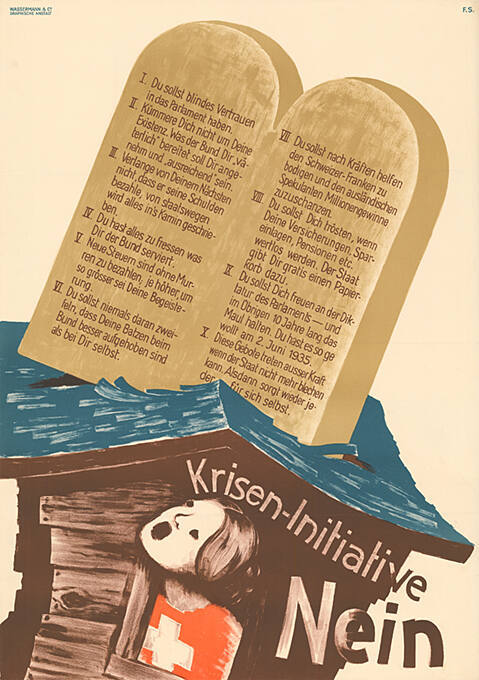 WASSERMANN & Cº
GRAPHISCHE ANSTALT
F.S.
I. Du sollst blindes Vertrauen
in das Parlament haben.
II. Kümmere Dich nicht um Deine
Existenz. Was der Bund Dir „vä-
terlich" bereitet soll Dir ange-
nehm und „ausreichend" sein.
III. Verlange von Deinem Nächsten
nicht, dass er seine Schulden
bezahle, von staatswegen
wird alles in's Kamin geschrie-
ben.
IV. Du hast alles zu fressen was
Dir der Bund serviert.
V. Neue Steuern sind ohne Mur-
ren zu bezahlen, je höher, um
so grösser sei Deine Begeiste-
rung.
VI. Du sollst niemals daran zwei-
feln, dass Deine Batzen beim
Bund besser aufgehoben sind
als bei Dir selbst.
VII. Du sollst nach Kräften helfen
den Schweizer-Franken zu
bodigen und den ausländischen
Spekulanten Millionengewinne
zuzuschanzen.
VIII. Du sollst Dich trösten, wenn
Deine Versicherungen, Spar-
einlagen, Pensionen etc.
wertlos werden. Der Staat
gibt Dir gratis einen Papier-
korb dazu.
IX. Du sollst Dich freuen an der Dik-
tatur des Parlaments — und
im Übrigen 10 Jahre lang das
Maul halten. Du hast es so ge
wollt am 2. Juni 1935.
X. Diese Gebote treten ausser Kraft
wenn der Staat nicht mehr blechen
kann. Alsdann sorgt wieder je-
der für sich selbst.
Krisen-Initiative
Nein